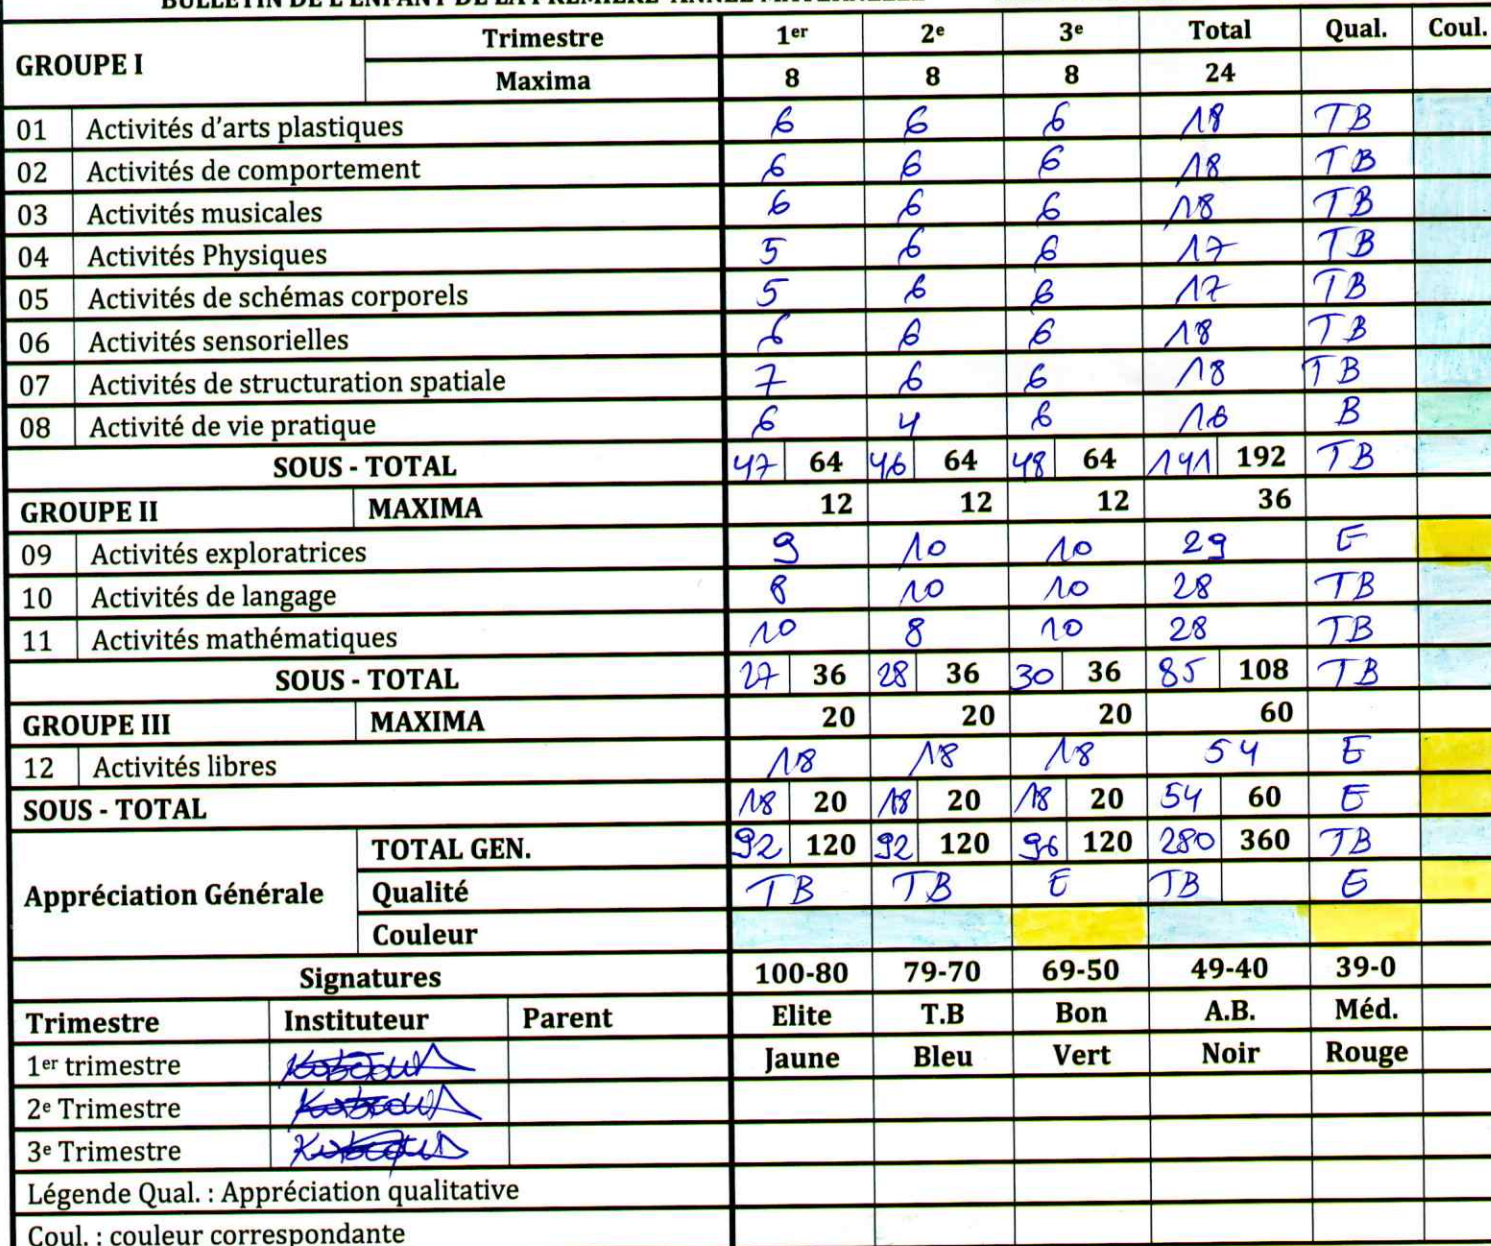 BULLETIN DE L'ENFANT DE LA PREMIERE ANNEE MATERNELLE
GROUPE I Trimestre 1er 2e 3e Total Qual. Coul.
Maxima 8 8 8 24
01 Activités d'arts plastiques 6 6 6 18 TB
02 Activités de comportement 6 6 6 18 TB
03 Activités musicales 6 6 6 18 TB
04 Activités Physiques 5 6 6 17 TB
05 Activités de schémas corporels 5 6 6 17 TB
06 Activités sensorielles 6 6 6 18 TB
07 Activités de structuration spatiale 7 6 6 18 TB
08 Activité de vie pratique 6 4 6 16 B
SOUS - TOTAL 47 64 46 64 48 64 141 192 TB
GROUPE II MAXIMA 12 12 12 36
09 Activités exploratrices 9 10 10 29 E
10 Activités de langage 8 10 10 28 TB
11 Activités mathématiques 10 8 10 28 TB
SOUS - TOTAL 27 36 28 36 30 36 85 108 TB
GROUPE III MAXIMA 20 20 20 60
12 Activités libres 18 18 18 54 E
SOUS - TOTAL 18 20 18 20 18 20 54 60 E
TOTAL GEN. 92 120 92 120 96 120 280 360 TB
Appréciation Générale Qualité TB TB E TB E
Couleur
Signatures 100-80 79-70 69-50 49-40 39-0
Trimestre Instituteur Parent Elite T.B Bon A.B. Méd.
1er trimestre Jaune Bleu Vert Noir Rouge
2e Trimestre
3e Trimestre
Légende Qual. : Appréciation qualitative
Coul. : couleur correspondante